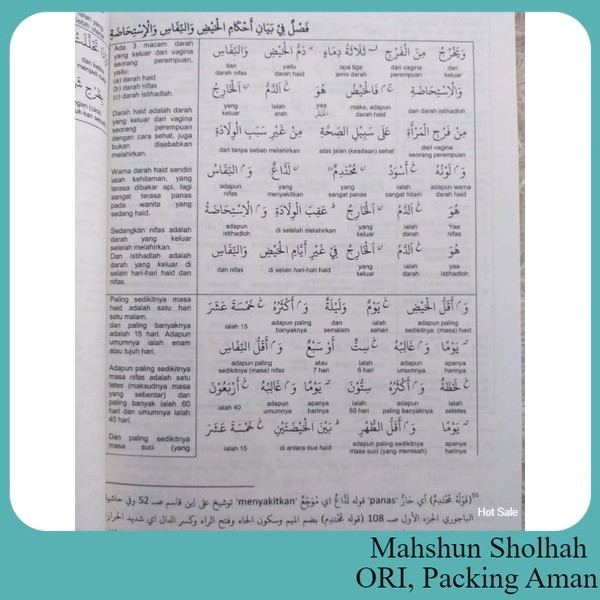 فَصْلٌ فِيْ بَيَانِ أَحْكَامِ الْحَيْضِ وَالنِّفَاسِ وَالْإِسْتِحَاضَةِ
Ada 3 macam darah
yang keluar dari vagina
seorang perempuan,
yaitu:
(a) darah haid
(b) darah nifas
(c) darah istihadloh.
Darah haid adalah darah
yang keluar dari vagina
seorang perempuan
dengan cara sehat, juga
bukan disebabkan
melahirkan.
Warna darah haid sendiri
ialah kehitaman, yang
terasa dibakar api, lagi
sangat terasa panas
pada wanita yang
sedang haid.
Sedangkan nifas adalah
darah yang keluar
setelah melahirkan.
Dan istihadlah adalah
darah yang keluar di
selain hari-hari haid dan
nifas.
وَيَخْرُجُ مِنَ الْفَرْجِ ثَلَاثَةُ دِمَاءٍ دَمُ الْحَيْضِ وَالنِّفَاسِ
dan keluar dari vagina apa tiga jenis darah yaitu darah haid dan darah nifas
وَالْإِسْتِحَاضَةِ فَالْحَيْضُ هُوَ الدَّمُ الْخَارِجُ
dan darah istihadloh maka, adapun darah haid ialah arah yang keluar
مِنْ فَرْجِ الْمَرْأَةِ عَلَى سَبِيْلِ الصِّحَّةِ مِنْ غَيْرِ سَبَبِ الْوِلَادَةِ
dari vagina seorang perempuan atas jalan (keadaan) sehat dan tanpa sebab melahirkan
وَلَوْنُهُ أَسْوَدُ مُحْتَدِمٌ لَذَّاعٌ وَالنِّفَاسُ
adapun warna darah haid ialah sangat hitam yang sangat panas yang menyakitkan adapun nifas
هُوَ الدَّمُ الْخَارِجُ عَقِبَ الْوِلَادَةِ وَالْإِسْتِحَاضَةُ
Yaa nifas ialah darah yang keluar di setelah melahirkan adapun istihadloh
هُوَ الدَّمُ الْخَارِجُ فِيْ غَيْرِ أَيَّامِ الْحَيْضِ وَالنِّفَاسِ
yaa istihadloh ialah darah yang keluar di selain hari-hari haid dan nifas
Paling sedikitnya masa
haid adalah satu hari
satu malam.
dan paling banyaknya
adalah 15 hari. Adapun
umumnya ialah enam
atau tujuh hari.
Adapun paling sedikitnya
masa nifas adalah satu
tetes (maksudnya masa
yang sebentar) dan
paling banyak ialah 60
hari dan umumnya ialah
40 hari.
Dan paling sedikitnya
masa suci (yang
وَأَقَلُّ الْحَيْضِ يَوْمٌ وَلَيْلَةٌ وَأَكْثَرُهُ خَمْسَةَ عَشَرَ
adapun paling sedikitnya (masa) haid ialah sehari dan semalam adapun paling banyaknya ialah 15
يَوْمًا وَغَالِبُهُ سِتٌّ أَوْ سَبْعٌ وَأَقَلُّ النِّفَاسِ
apanya harinya adapun umumnya ialah 6 hari atau 7 hari adapun paling sedikitnya (masa) nifas
لَحْظَةٌ وَأَكْثَرُهُ سِتُّوْنَ يَوْمًا وَغَالِبُهُ أَرْبَعُوْنَ
ialah setetes adapun paling banyaknya ialah 60 hari apanya harinya adapun umumnya ialah 40
يَوْمًا وَأَقَلُّ الطُّهْرِ بَيْنَ الْحَيْضَتَيْنِ خَمْسَةَ عَشَرَ
apanya harinya adapun paling sedikitnya masa suci (yang memisah) di antara dua haid ialah 15
(قَوْلُهُ مُحْتَدِمٌ) أي حَارٌّ 'panas' قوله لَذَّاعٌ اي مُوْجِعٌ 'menyakitkan' توشيخ على إبن قاسم صـ 52 وفي حاشية
الباجوري الجزء الأول صـ 108 (قوله مُحْتَدِمٌ) بضم الميم وسكون الحاء وفتح الراء وكسر الدال أي شديد الحرارة
Hot Sale
Mahshun Sholhah
ORI, Packing Aman